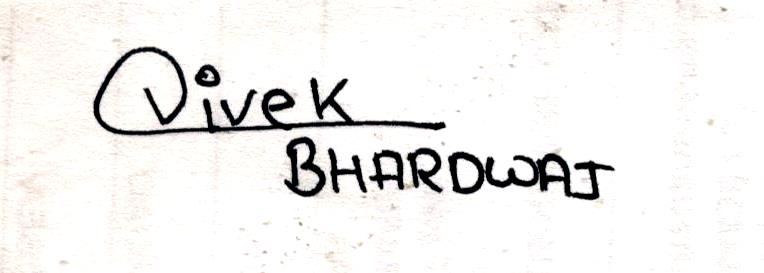 Vivek
BHARDWAJ